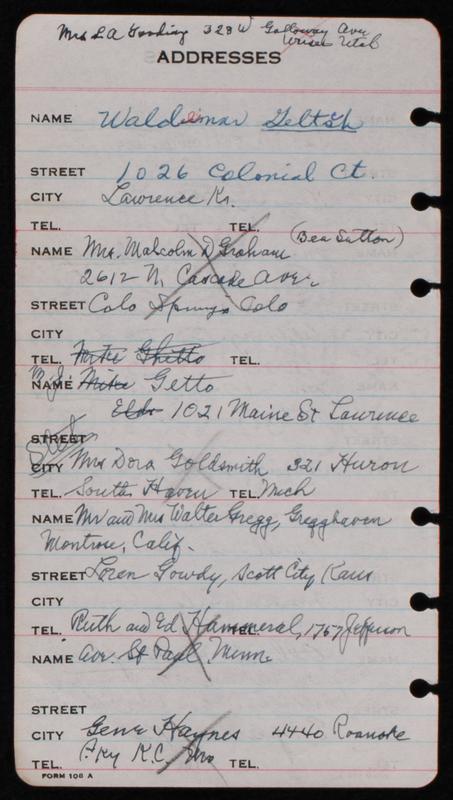 Mrs L A Gooding 328 W Galloway Ave
Weiser Utah
ADDRESSES
NAME Waldemar Geltch
STREET 1026 Colonial Ct.
CITY Lawrence K.
TEL. TEL.
NAME Mrs. Malcolm D Graham (Bea Sutton)
2612 N. Cascade Ave.
STREET Colo Springs Colo
CITY
TEL. Mike Ghetto TEL.
NAME Mike Getto
1021 Maine St Lawrence
STREET
CITY Mrs Dora Goldsmith 321 Huron
TEL. South Haven TEL. Mich
NAME Mr and Mrs Walter Gregg, Gregghaven
Montrose, Calif.
STREET Loren Gowdy, Scott City Kans
CITY
TEL. Ruth and Ed Hammeral, TEL. 1757 Jefferson
NAME Ave. St Paul Minn
STREET
CITY Gene Haynes 4440 Roanoke
TEL. Pky K.C. Mo TEL.
FORM 106 A